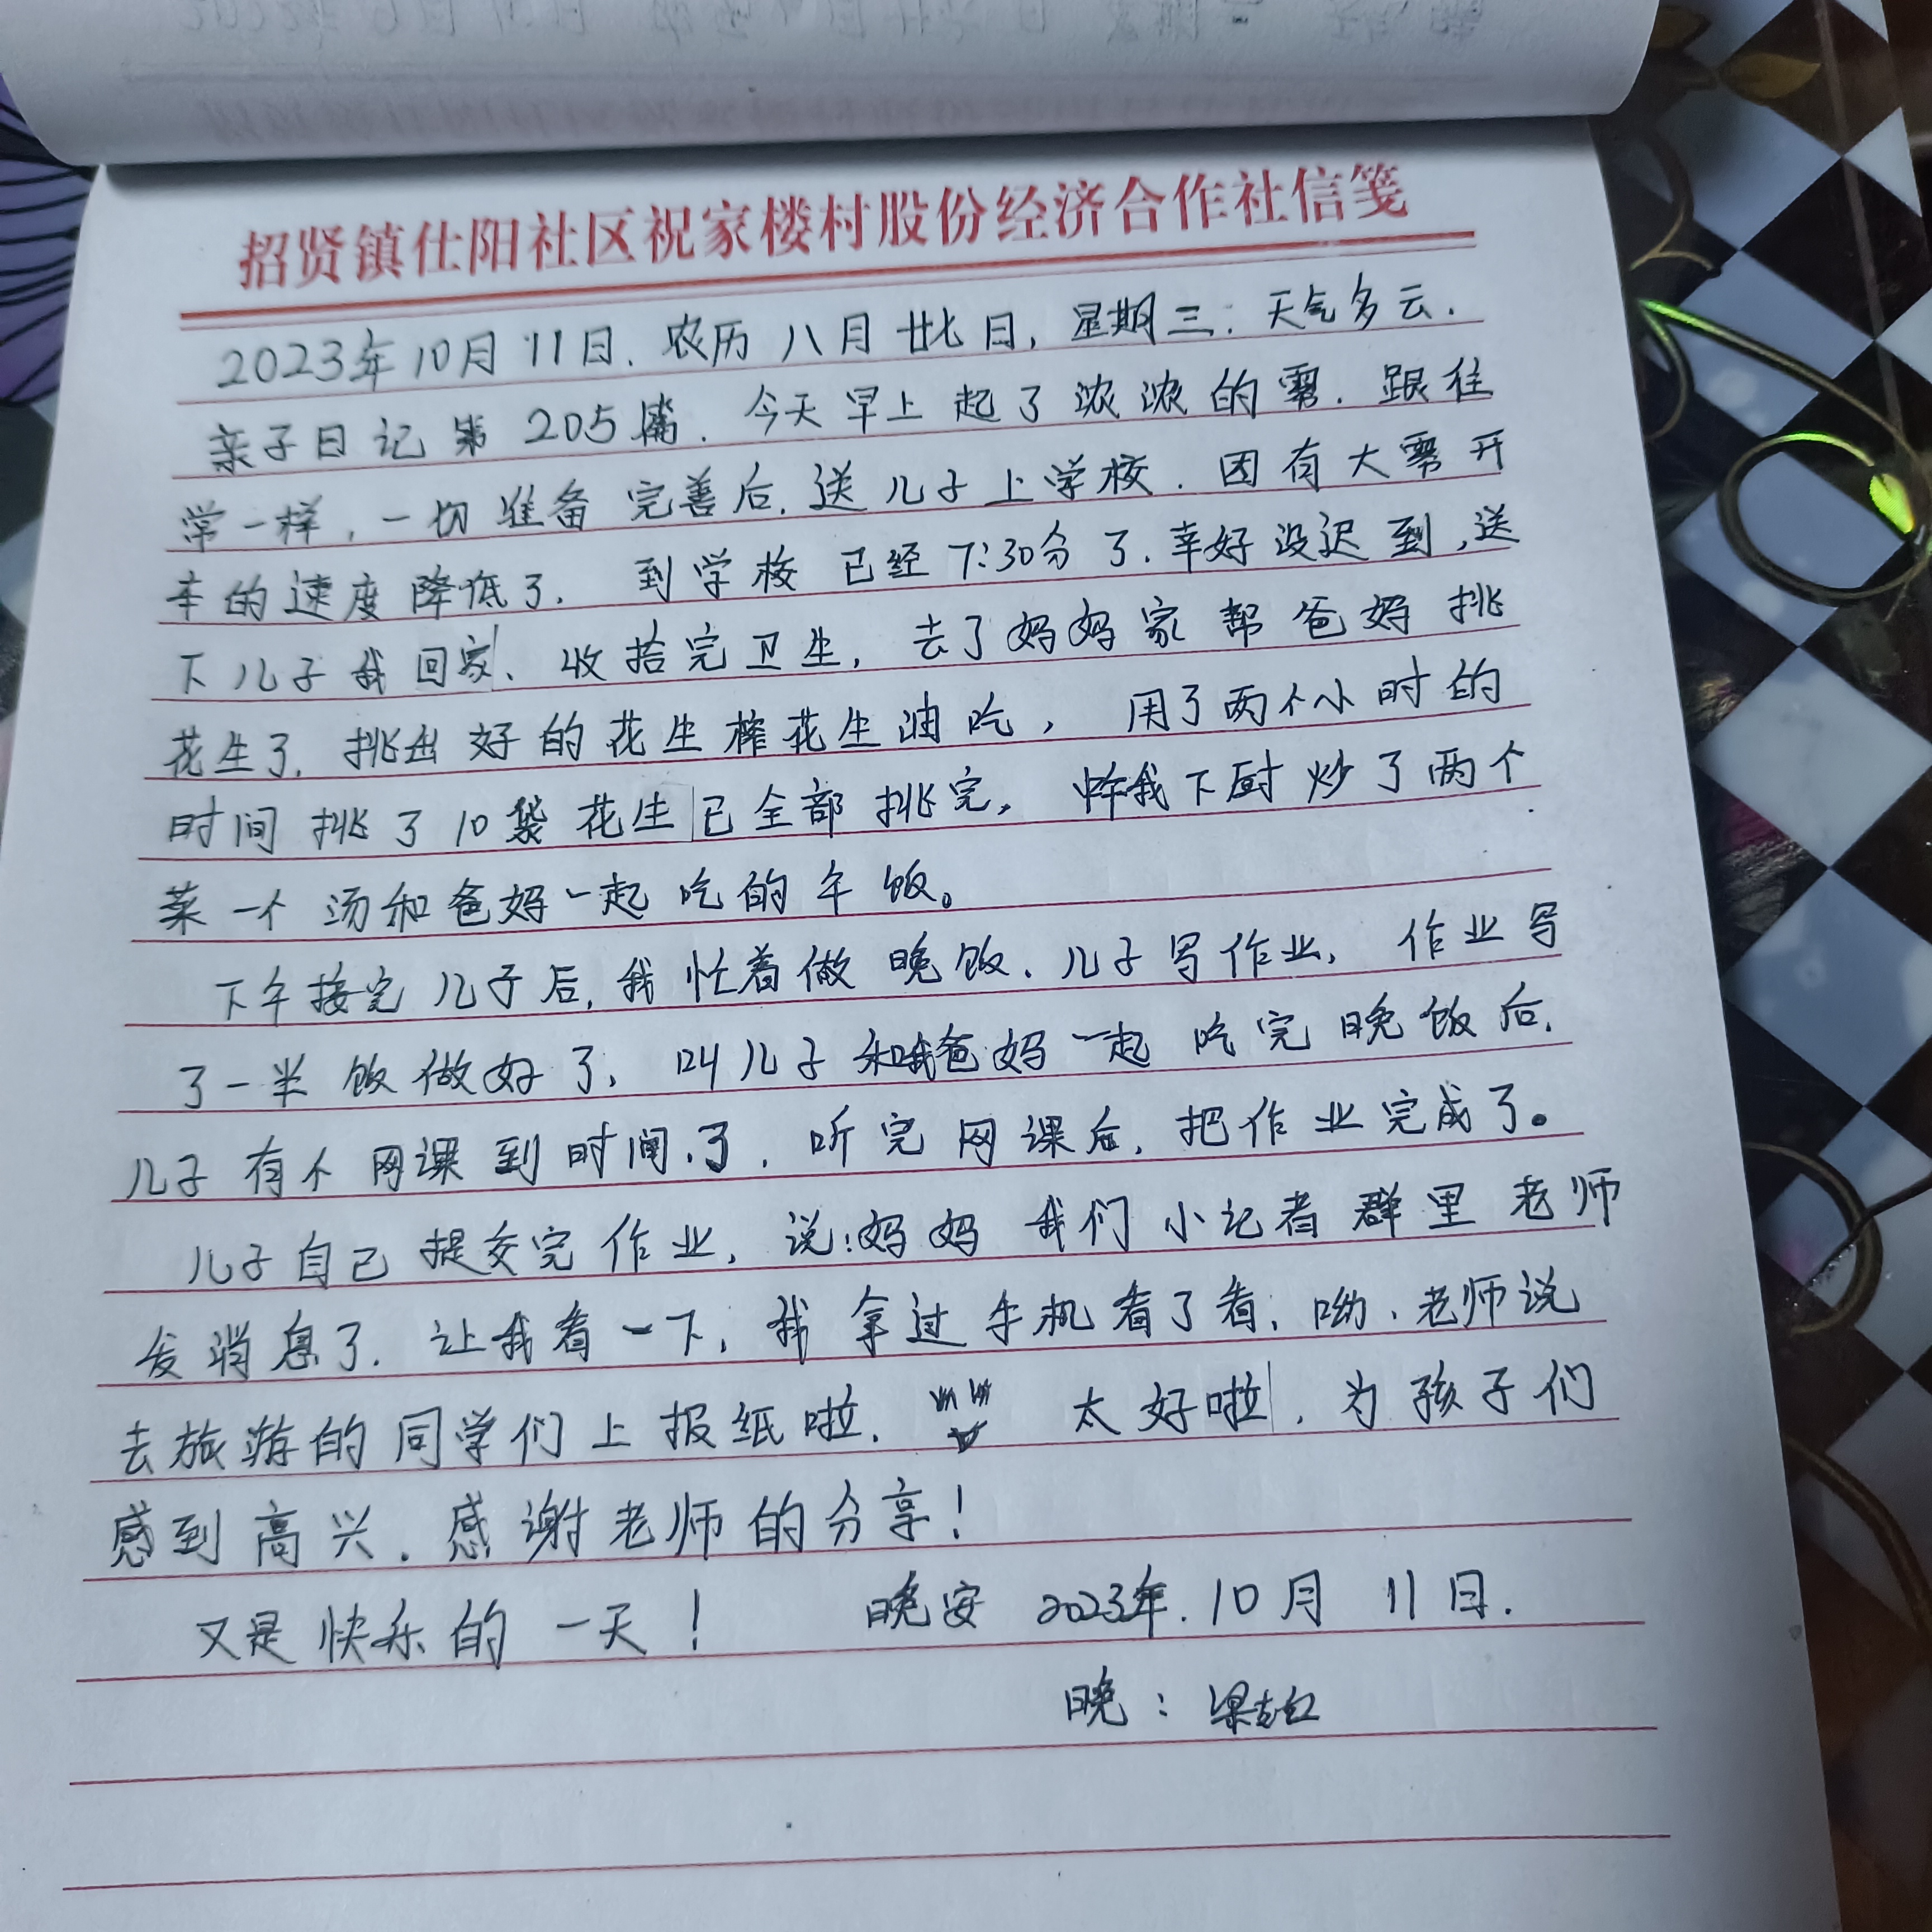 招贤镇仕阳社区祝家楼村股份经济合作社信笺
2023年10月11日.农历八月廿七日,星期三:天气多云.
亲子日记第205篇.今天早上起了浓浓的雾.跟往
常一样,一切准备完善后.送儿子上学校.因有大雾开
车的速度降低了.到学校已经7:30分了.幸好没迟到,送
下儿子我回家、收拾完卫生,去了妈妈家帮爸妈挑
花生了.挑出好的花生榨花生油吃,用了两个小时的
时间挑了10袋花生已全部挑完,我下厨炒了两个
菜一个汤和爸妈一起吃的午饭。
下午接完儿子后,我忙着做晚饭、儿子写作业,作业写
了一半饭做好了,叫儿子和我爸妈一起吃完晚饭后.
儿子有个网课到时间了.听完网课后,把作业完成了。
儿子自己提交完作业,说:妈妈我们小记者群里老师
发消息了.让我看一下,我拿过手机看了看,呦、老师说
去旅游的同学们上报纸啦.太好啦,为孩子们
感到高兴.感谢老师的分享!
又是快乐的一天! 晚安 2023年.10月11日.
晚:梁